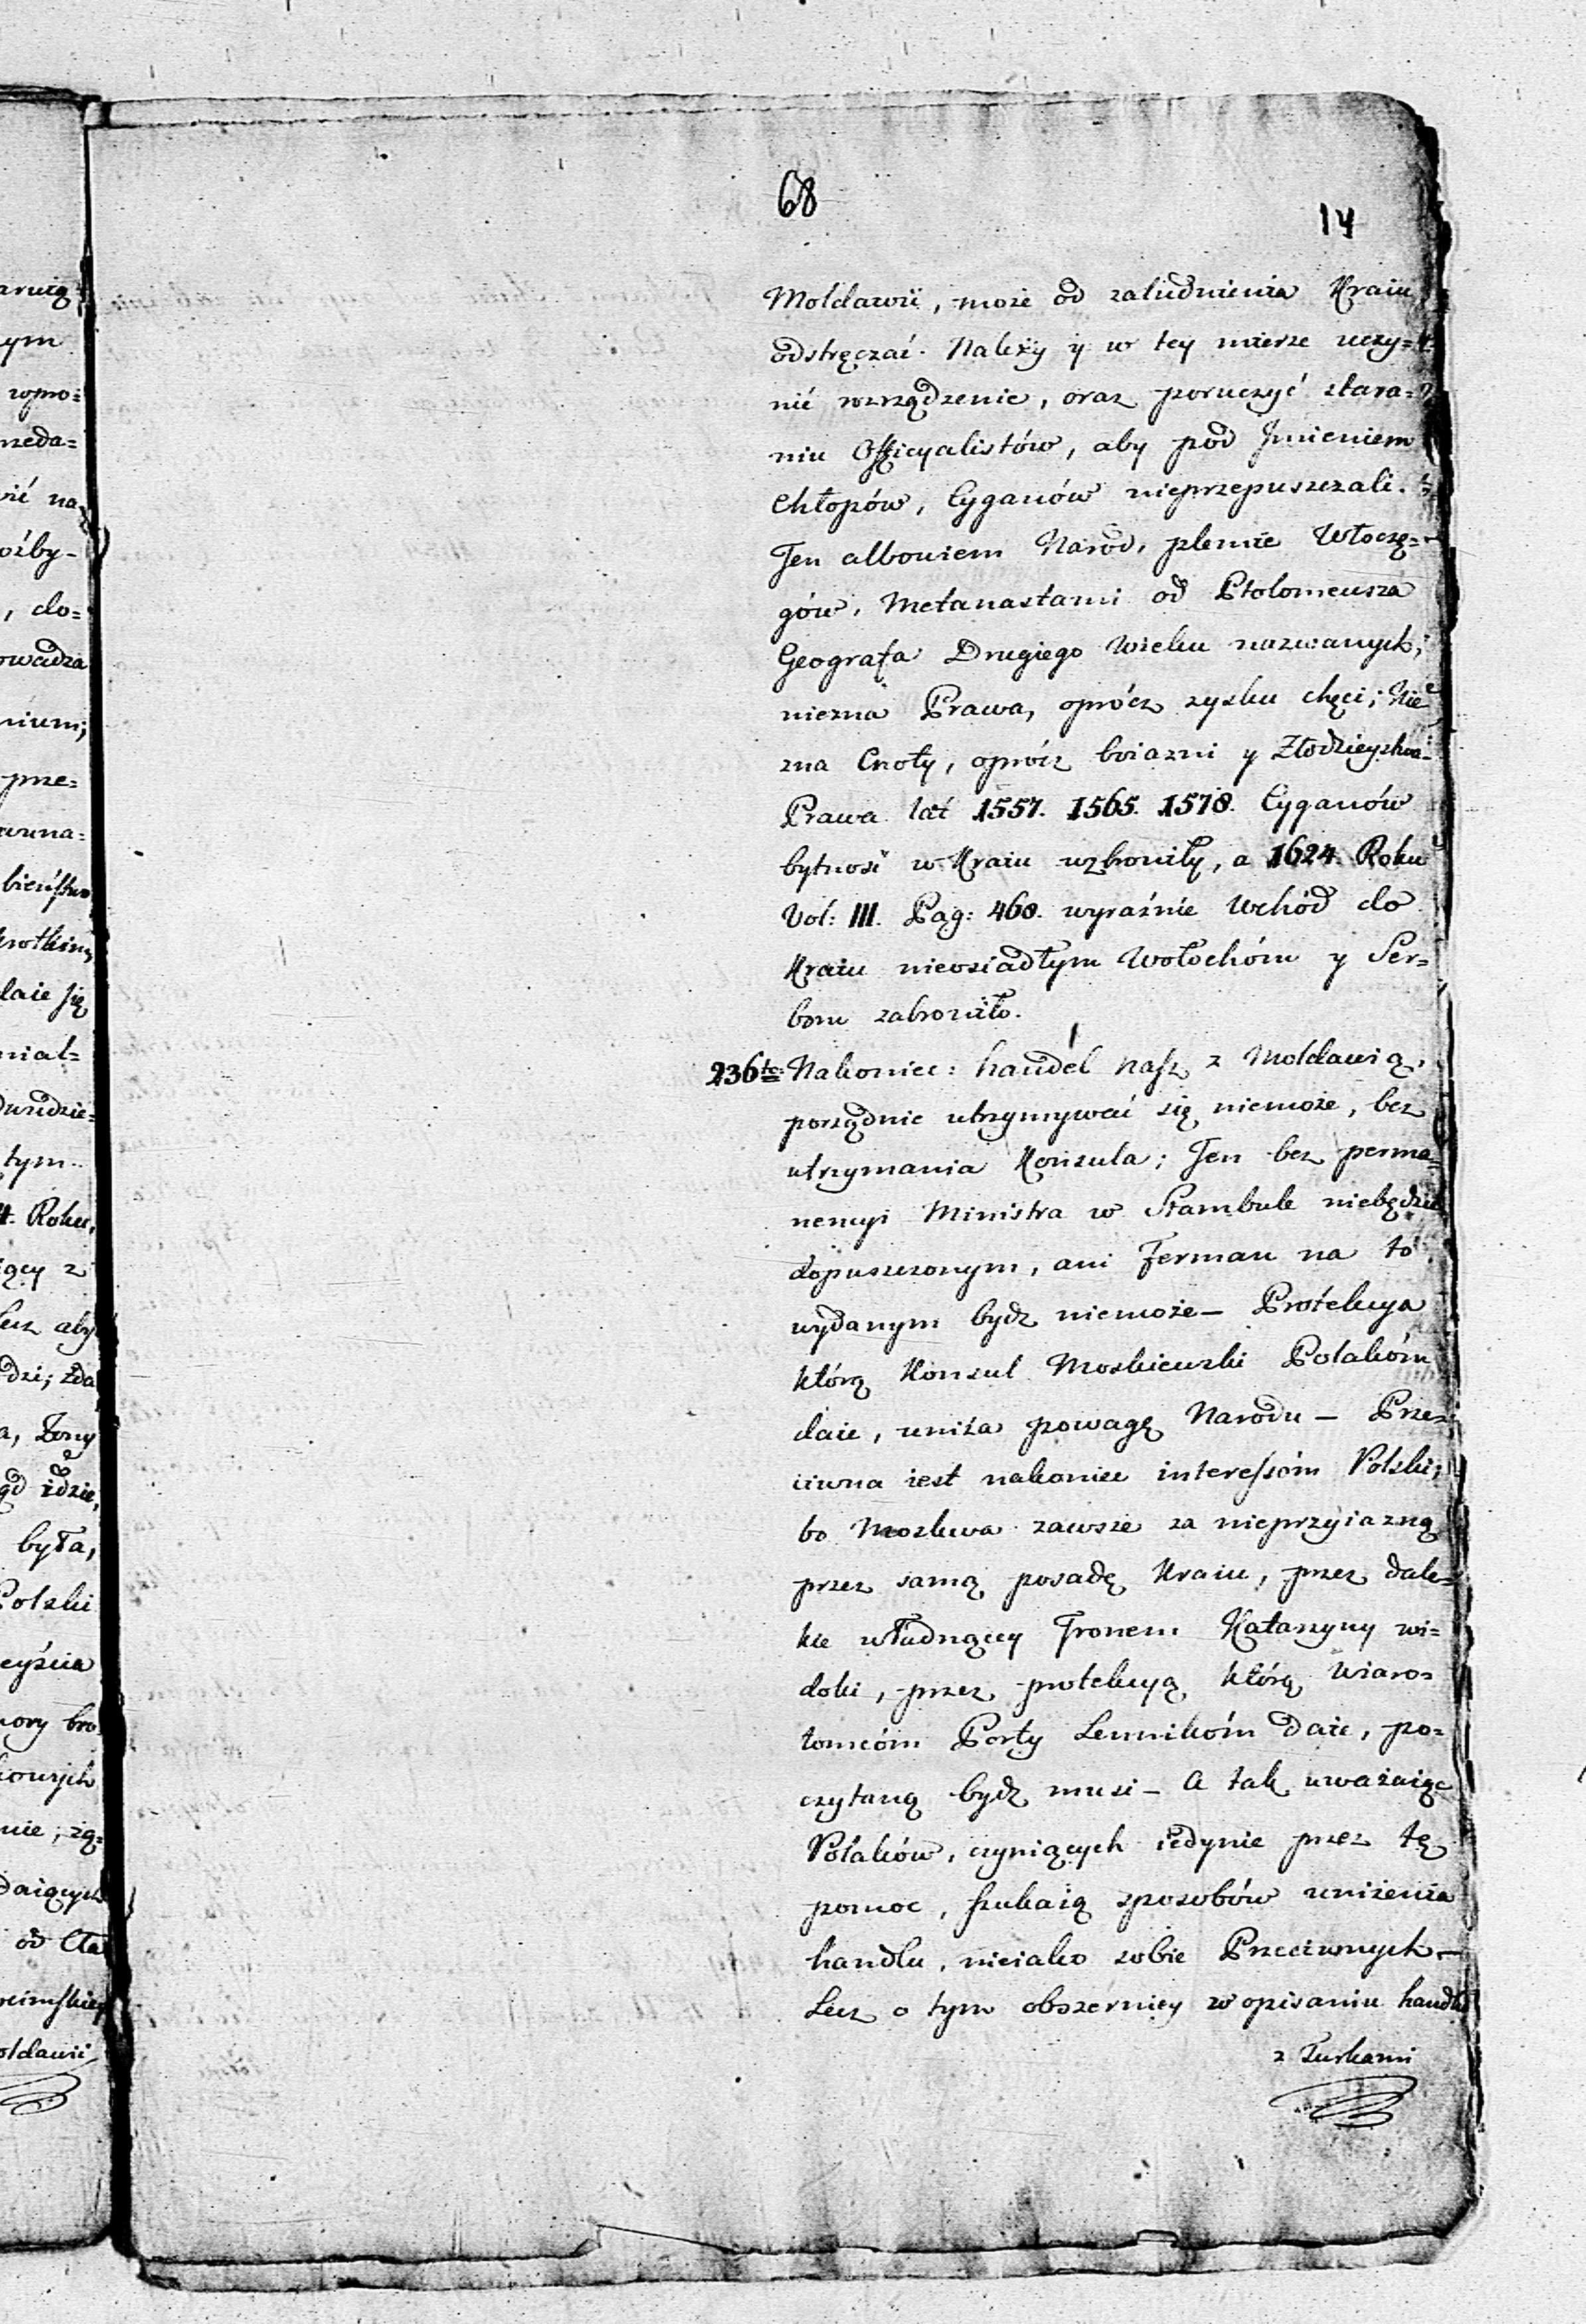 arnią
ym
wpro=
rzeda=
vić na
oźby-
, do=
owadza
nium;
prze=
awna=
bieństwo
krotkim,
daie się
mial=
dwudzie=
tym..
4. Roku,
iący z
lecz aby
dzi; żda
a, Żony
ąd idzie,
była,
Polski
eyścia
nory bro
kowych
nie, zą=
daiących
od Cła
ołdawii
68
14
Mołdawii, może od zaludnienia Kraiu
odstręczać. Należy y w tey mierze uczy=
nić rozrządzenie, oraz poruczyć stara=
niu Officyalistów, aby pod Jmieniem
Chłopów, Cyganów nieprzepuszczali.
Ten albowiem Naród, plemie Włoczę=
gów, Metanastami od Ptolomeusza
Geografa Drugiego Wieku nazwanych,
niezna Prawa, oprócz zysku chęci; Nie
zna Cnoty, oprócz boiazni y Złodzieystwa.
Prawa lat 1557. 1565. 1578. Cyganów
bytność w Kraiu wzbroniły, a 1624. Roku
Vol: III. Pag: 460. wyraźnie Wchód do
Kraiu nieosiadłym Wołochóm y Ser=
bom zabroniło.
236to: Nakoniec: handel nasz z Mołdawią,
porządnie utrzymywać się niemoże, bez
utrzymania Konsula; Ten bez perma=
nencyi Ministra w Stambule niebędzie
dopuszczonym, ani Ferman na to
wydanym bydz niemoże – Protekcya
którą Konsul Moskiewski Polakóm
daie, uniża powagę Narodu – Prze=
ciwna iest nakoniec interessóm Polski;
bo Moskwa zawsze za nieprzyiazną
przez samą posadę Kraiu, przez dale=
kie władnącey Tronem Katarzyny wi=
doki, przez protekcyą którą wiaro=
łomcóm Porty Lennikóm daie, po=
czytaną bydz musi – A tak uważaiąc
Polaków, czyniących iedynie przez tę
pomoc, szukaią sposobów uniżenia
handlu, nieiako sobie Przeciwnych –
Lecz o tym obszerniey w opisaniu handlu
z Turkami